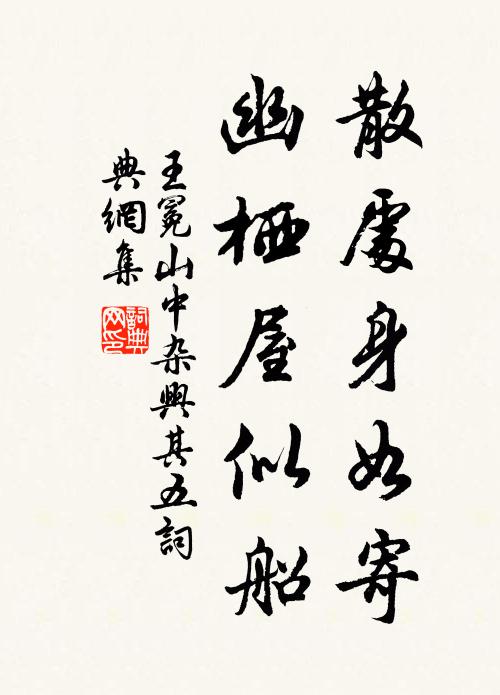 散處身如寄
幽栖屋似船
王冕山中杂興其五詞
典網集
詞典
网印